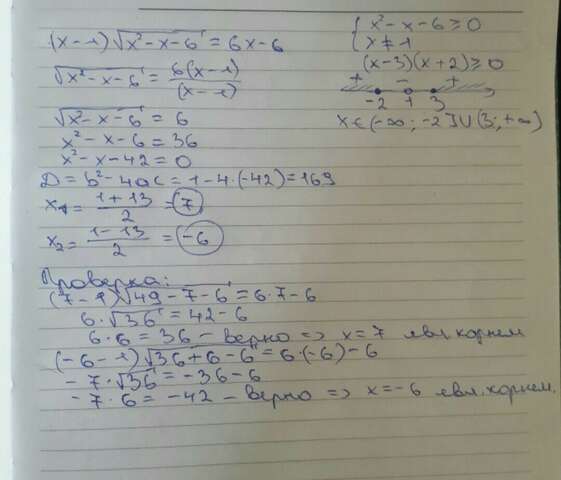 (x-1)√x²-x-6 = 6x-6
√x²-x-6 = 6(x-1)/(x-1)
√x²-x-6 = 6
x²-x-6 = 36
x²-x-42 = 0
D = b²-4ac = 1-4·(-42) = 169
x₁ = (1+13)/2 = 7
x₂ = (1-13)/2 = -6
{ x²-x-6 ≥ 0
{ x ≠ 1
(x-3)(x+2) ≥ 0
+ - +
-2 1 3
x ∈ (-∞; -2] ∪ (3; +∞)
Проверка:
(7-1)√49-7-6 = 6·7-6
6·√36 = 42-6
6·6 = 36 - верно => x=7 явл. корнем
(-6-1)√36+6-6 = 6·(-6)-6
-7·√36 = -36-6
-7·6 = -42 - верно => x=-6 явл. корнем.